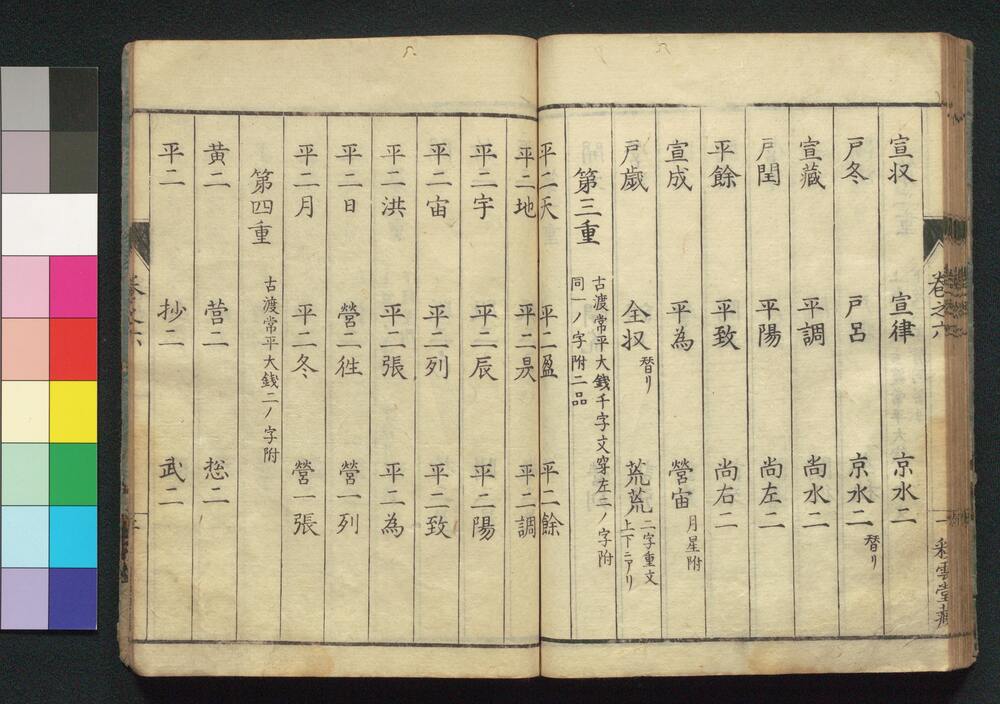 卷之六
彩雲堂藏
宣収 宣律 京水二
戸冬 戸呂 京水二 替リ
宣藏 平調 尚水二
戸閏 平陽 尚左二
平餘 平致 尚右二
宣成 平為 營宙 月星附
戸歲 全収 替リ 荒荒 二字重文上下ニアリ
第三重 古渡常平大錢千字文穿左二ノ字附
同一ノ字附二品
平二天 平二盈 平二餘
平二地 平二昃 平二調
平二宇 平二辰 平二陽
平二宙 平二列 平二致
平二洪 平二張 平二為
平二日 營二徃 營一列
平二月 平二冬 營一張
第四重 古渡常平大錢二ノ字附
黄二 营二 捴二
平二 抄二 武二